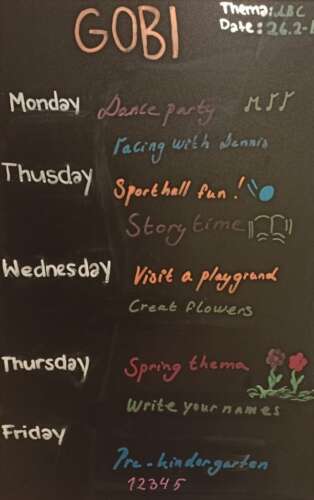 GOBI
Thema: ABC
Date: 26.2-1
Monday Dance party
racing with Dennis
Thusday Sporthall fun!
Story time
Wednesday Visit a playgrand
Creat flowers
Thursday Spring thema
Write your names
Friday
Pre-kindergarten
12345